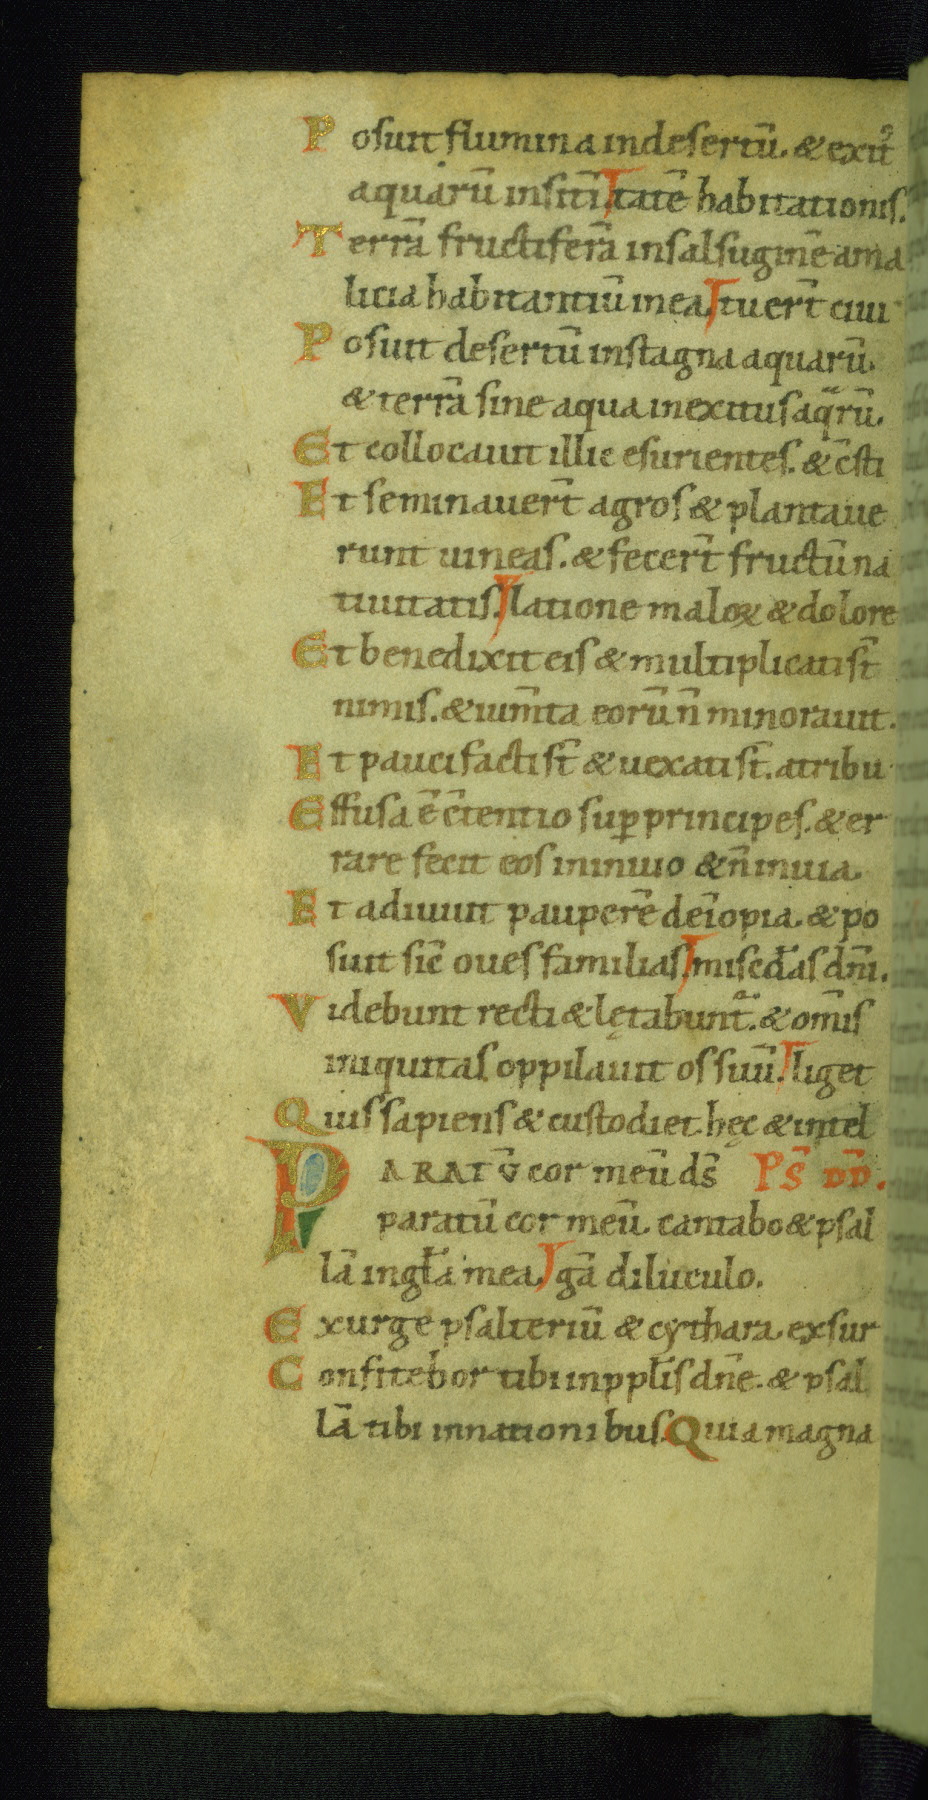 Posuit flumina indesertū. & exit᷒
aquarū insitī tatē habitationis.
Terrā fructiferā insalsuginē ama
licia habitantiū inea. tuer̄t ciui
Posuit desertū instagna aquarū.
& terrā sine aqua inexitus aq̄rū.
Et collocauit illic esurientes. & c̄sti
Et seminauer̄t agros & plantaue
runt uineas. & fecer̄t fructū na
tiuitatis. latione maloꝝ & dolore
Et benedixit eis & multiplicati st̄
nimis. & ium̄ta eorū n̄ minorauit.
Et pauci facti st̄ & uexati st̄. atribu
Effusa ē c̄tentio suꝑ principes. & er
rare fecit eos ininuio & n̄ inuia.
Et adiuuit pauperē deīopia. & po
suit sic̄ oues familias. misc̄das dn̄i.
Videbunt recti & lętabunt᷒. & om̄is
iniquitas oppilauit os suū. liget
Quis sapiens & custodiet hęc & intel
PARATV̄ cor meū ds̄ Ps̄ DD̄.
paratū cor meū. cantabo & psal
lā ingl̄a mea. gā diluculo.
Exurge psalteriū & cythara. exsur
Confitebor tibi inppl̄is dn̄e. & psal
lā tibi innationibus. Quia magna